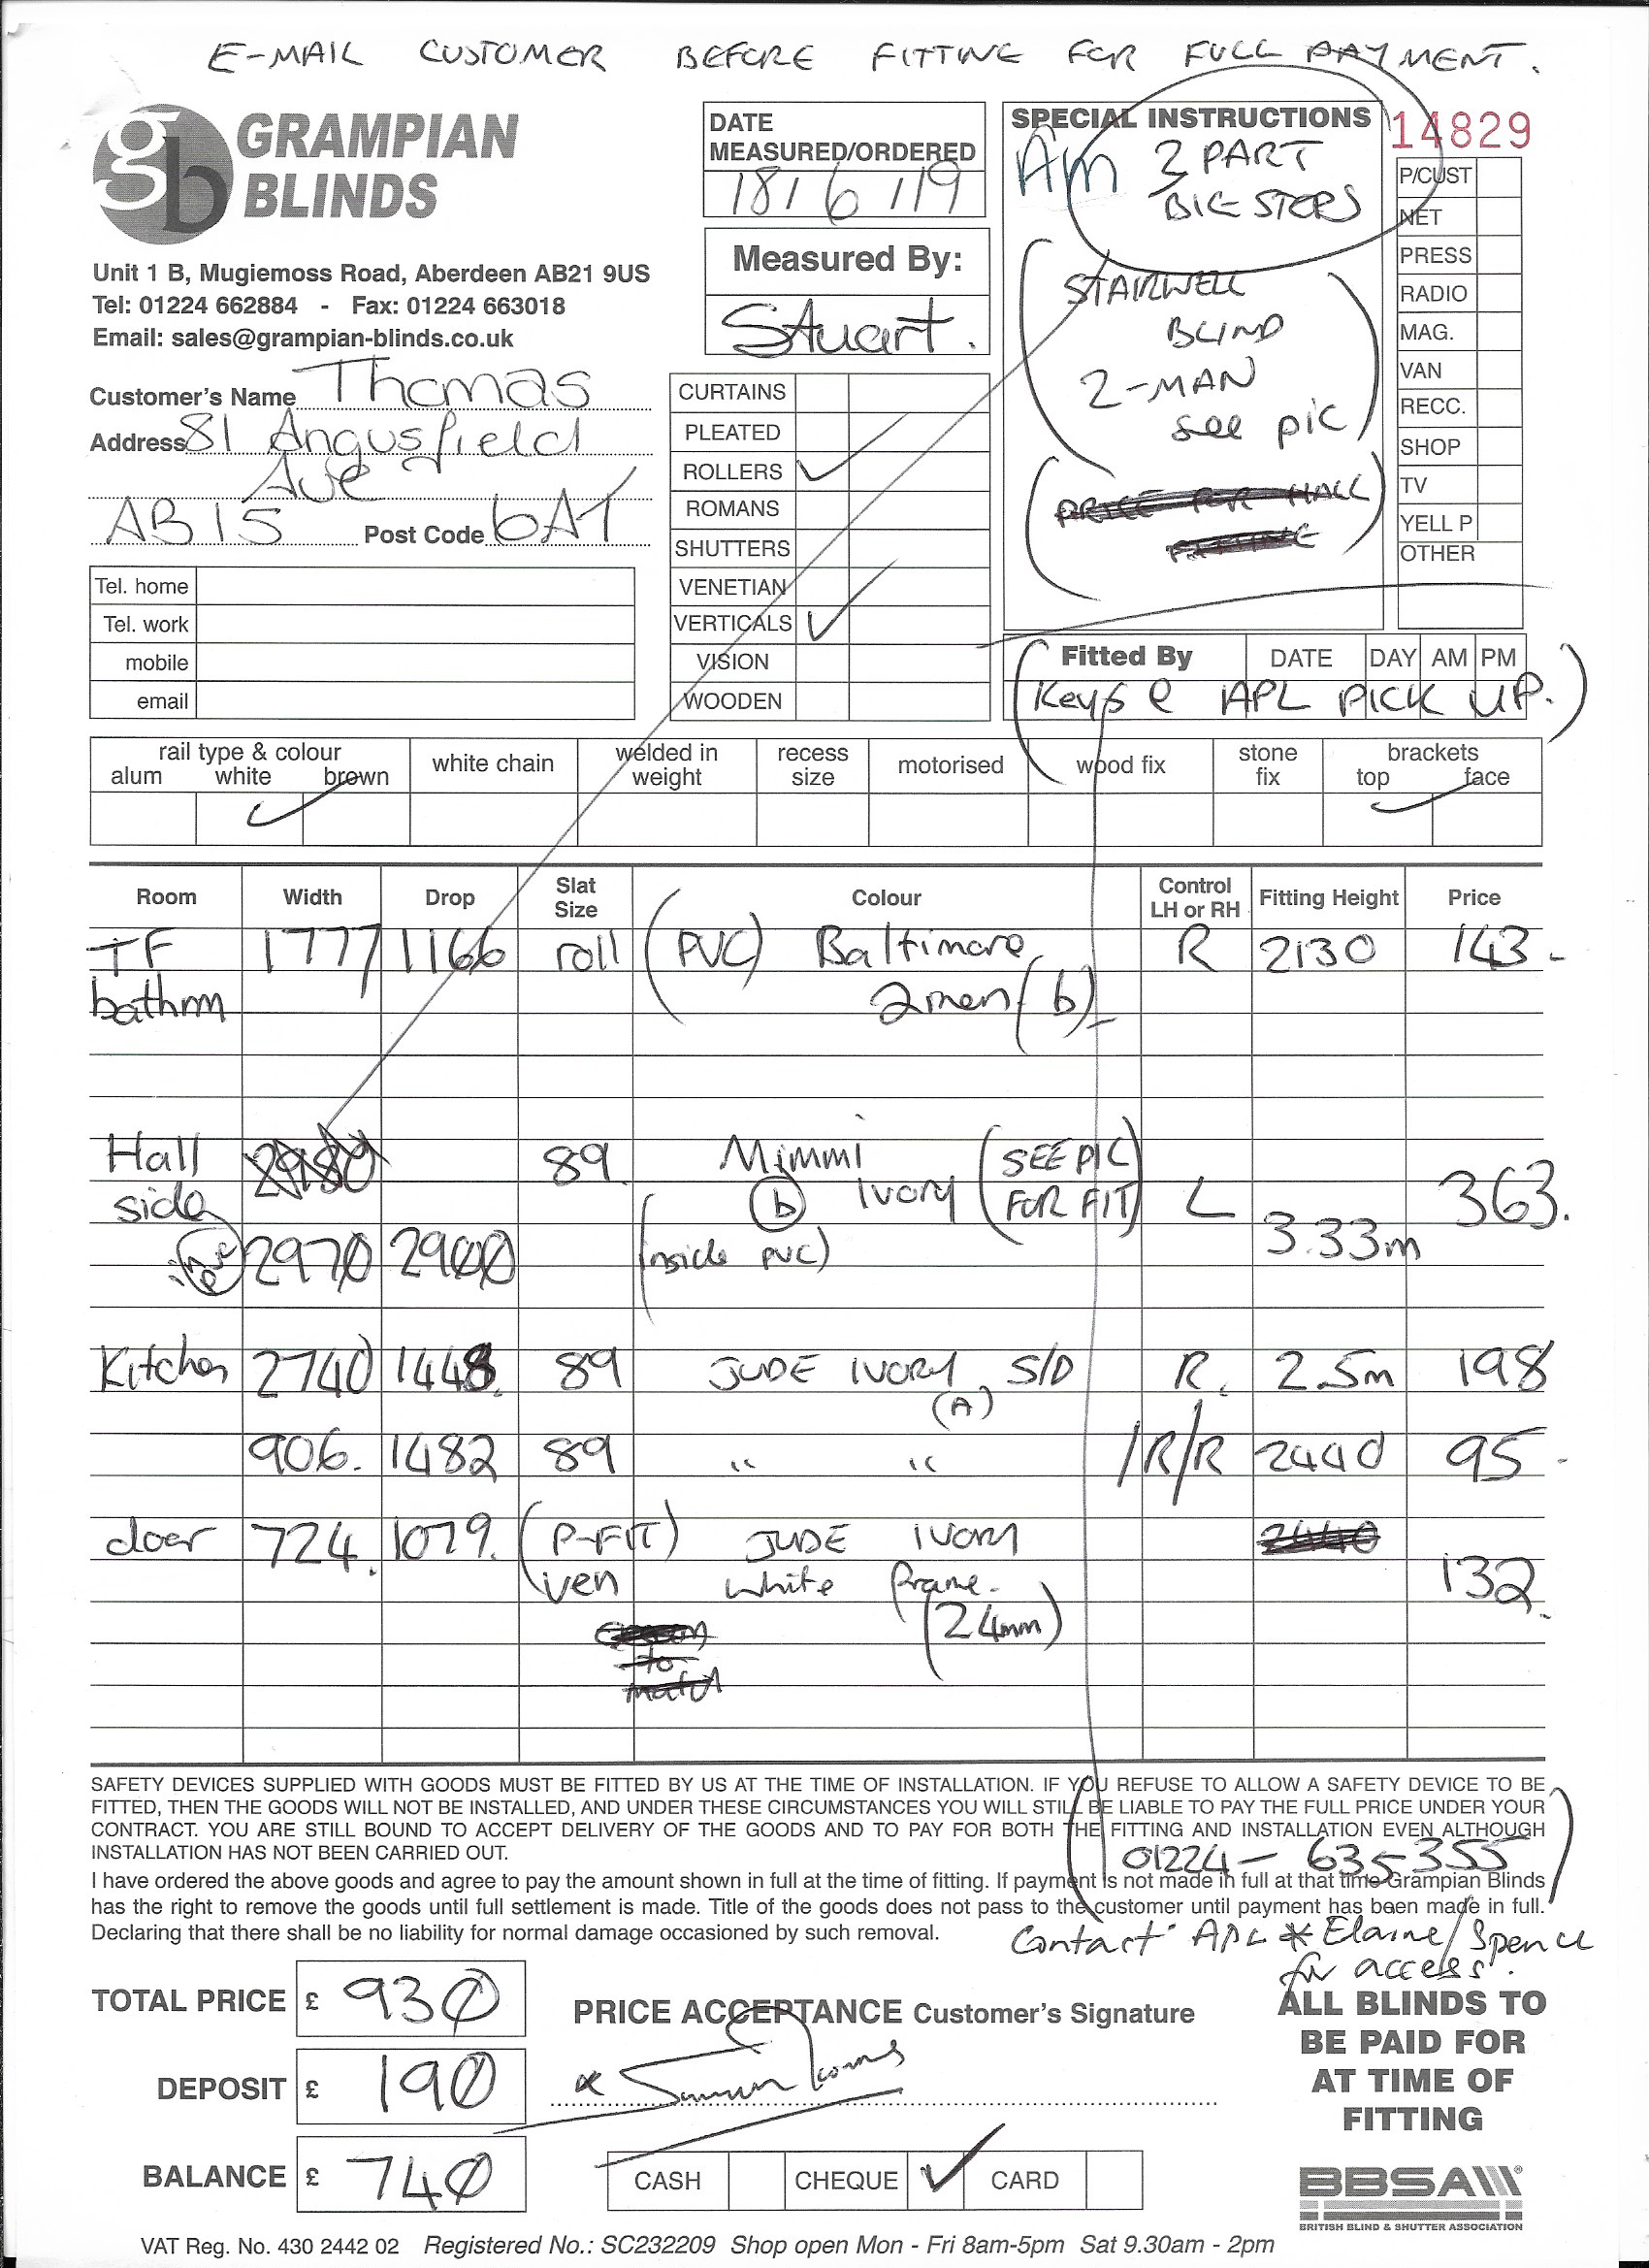 E-MAIL CUSTOMER BEFORE FITTING FOR FULL PAYMENT.
gb GRAMPIAN
BLINDS
Unit 1 B, Mugiemoss Road, Aberdeen AB21 9US
Tel: 01224 662884 - Fax: 01224 663018
Email: sales@grampian-blinds.co.uk
Customer's Name Thomas
Address 81 Angusfield
Ave
AB15 Post Code 6AT
Tel. home
Tel. work
mobile
email
DATE
MEASURED/ORDERED
18/6/19
Measured By:
Stuart.
CURTAINS
PLEATED
ROLLERS ✓
ROMANS
SHUTTERS
VENETIAN
VERTICALS ✓
VISION
WOODEN
SPECIAL INSTRUCTIONS
Am 3 PART
BIG STEPS
(STAIRWELL
BLIND
2-MAN
see pic)
(PRICE FOR HALL
FITTING)
14829
P/CUST
NET
PRESS
RADIO
MAG.
VAN
RECC.
SHOP
TV
YELL P
OTHER
Fitted By DATE DAY AM PM
(Keys @ APL PICK UP.)
rail type & colour white chain welded in recess motorised wood fix stone brackets
alum white brown weight size fix top face
✓ ✓
Room Width Drop Slat Size Colour Control LH or RH Fitting Height Price
TF 1777 1166 roll (PVC) Baltimore R 2130 143-
bathrm 2men (b)
Hall 2980 89 Mimmi (SEE PIC
side (b) Ivory FOR FIT) L 363.
2970 2900 (inside PVC) 3.33m
Kitchen 2740 1448. 89 JUDE IVORY S/D R. 2.5m 198
(A)
906. 1482 89 " " /R/R 2440 95-
door 724. 1079. (P-FIT) JUDE IVORY 2440
ven white frame. 132.
(24mm)
to
match
SAFETY DEVICES SUPPLIED WITH GOODS MUST BE FITTED BY US AT THE TIME OF INSTALLATION. IF YOU REFUSE TO ALLOW A SAFETY DEVICE TO BE
FITTED, THEN THE GOODS WILL NOT BE INSTALLED, AND UNDER THESE CIRCUMSTANCES YOU WILL STILL BE LIABLE TO PAY THE FULL PRICE UNDER YOUR
CONTRACT. YOU ARE STILL BOUND TO ACCEPT DELIVERY OF THE GOODS AND TO PAY FOR BOTH THE FITTING AND INSTALLATION EVEN ALTHOUGH
INSTALLATION HAS NOT BEEN CARRIED OUT.
(01224 - 635355)
I have ordered the above goods and agree to pay the amount shown in full at the time of fitting. If payment is not made in full at that time Grampian Blinds
has the right to remove the goods until full settlement is made. Title of the goods does not pass to the customer until payment has been made in full.
Declaring that there shall be no liability for normal damage occasioned by such removal.
Contact APL * Elaine/Spence
for access.
TOTAL PRICE £ 930
DEPOSIT £ 190
BALANCE £ 740
PRICE ACCEPTANCE Customer's Signature
x
CASH CHEQUE ✓ CARD
ALL BLINDS TO
BE PAID FOR
AT TIME OF
FITTING
BBSA
BRITISH BLIND & SHUTTER ASSOCIATION
VAT Reg. No. 430 2442 02 Registered No.: SC232209 Shop open Mon - Fri 8am-5pm Sat 9.30am - 2pm